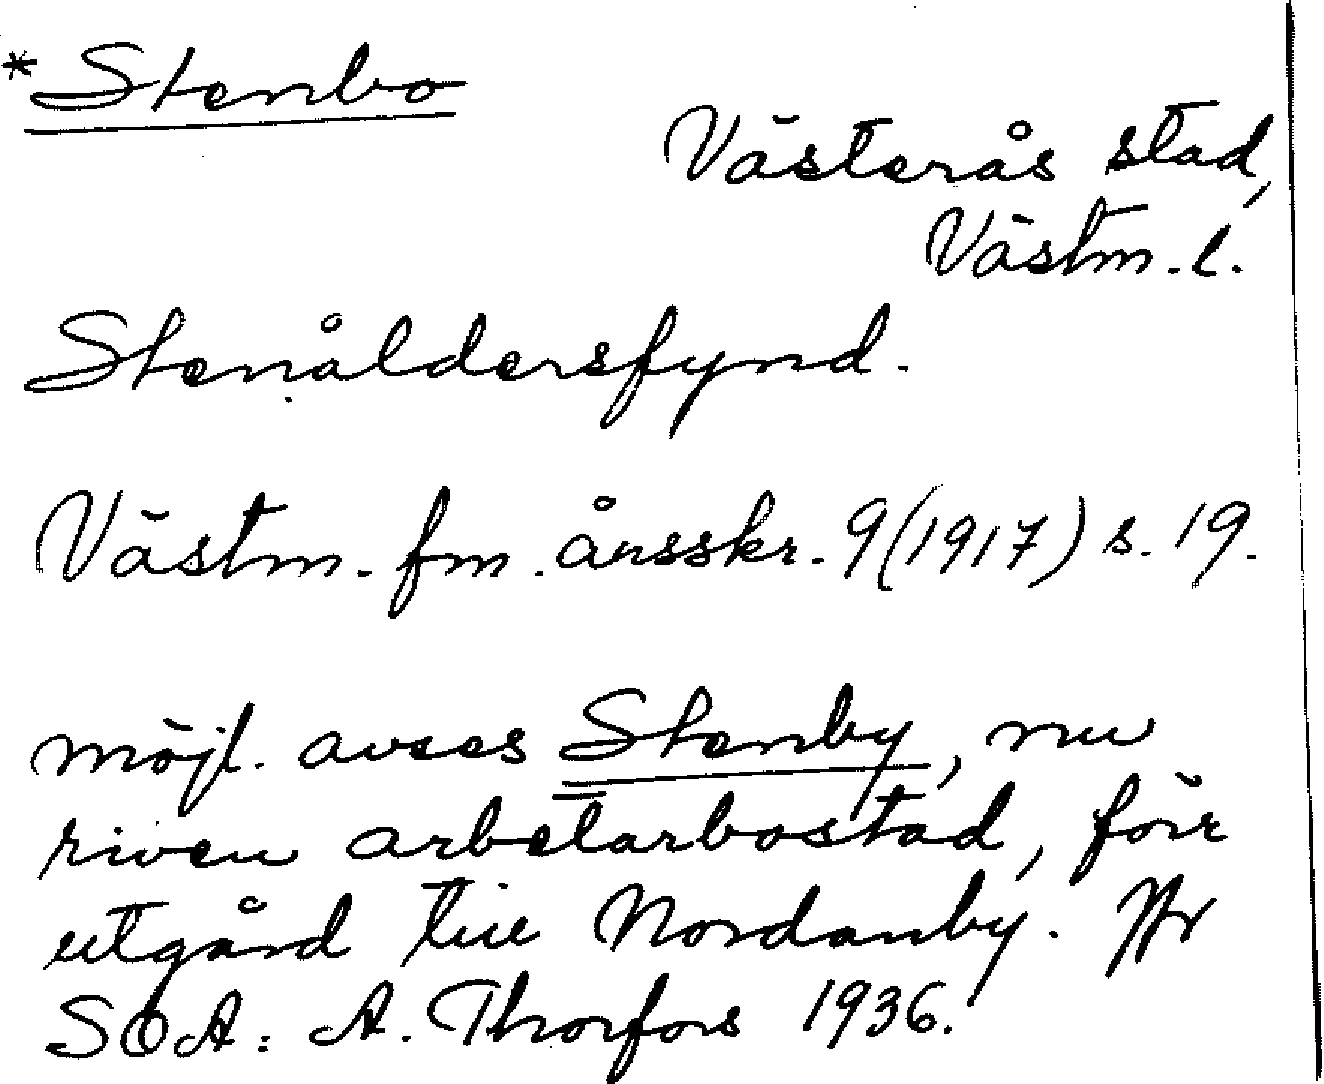 *Stenbo
Västerås stad,
Västm. l.
Stenåldersfynd.
Västm. fm. årsskr. 9 (1917) s. 19.
möjl. avses Stenby, nu
riven arbetarbostad, förr
utgård till Nordanby. Jfr
SOA: A. Thorfors 1936.